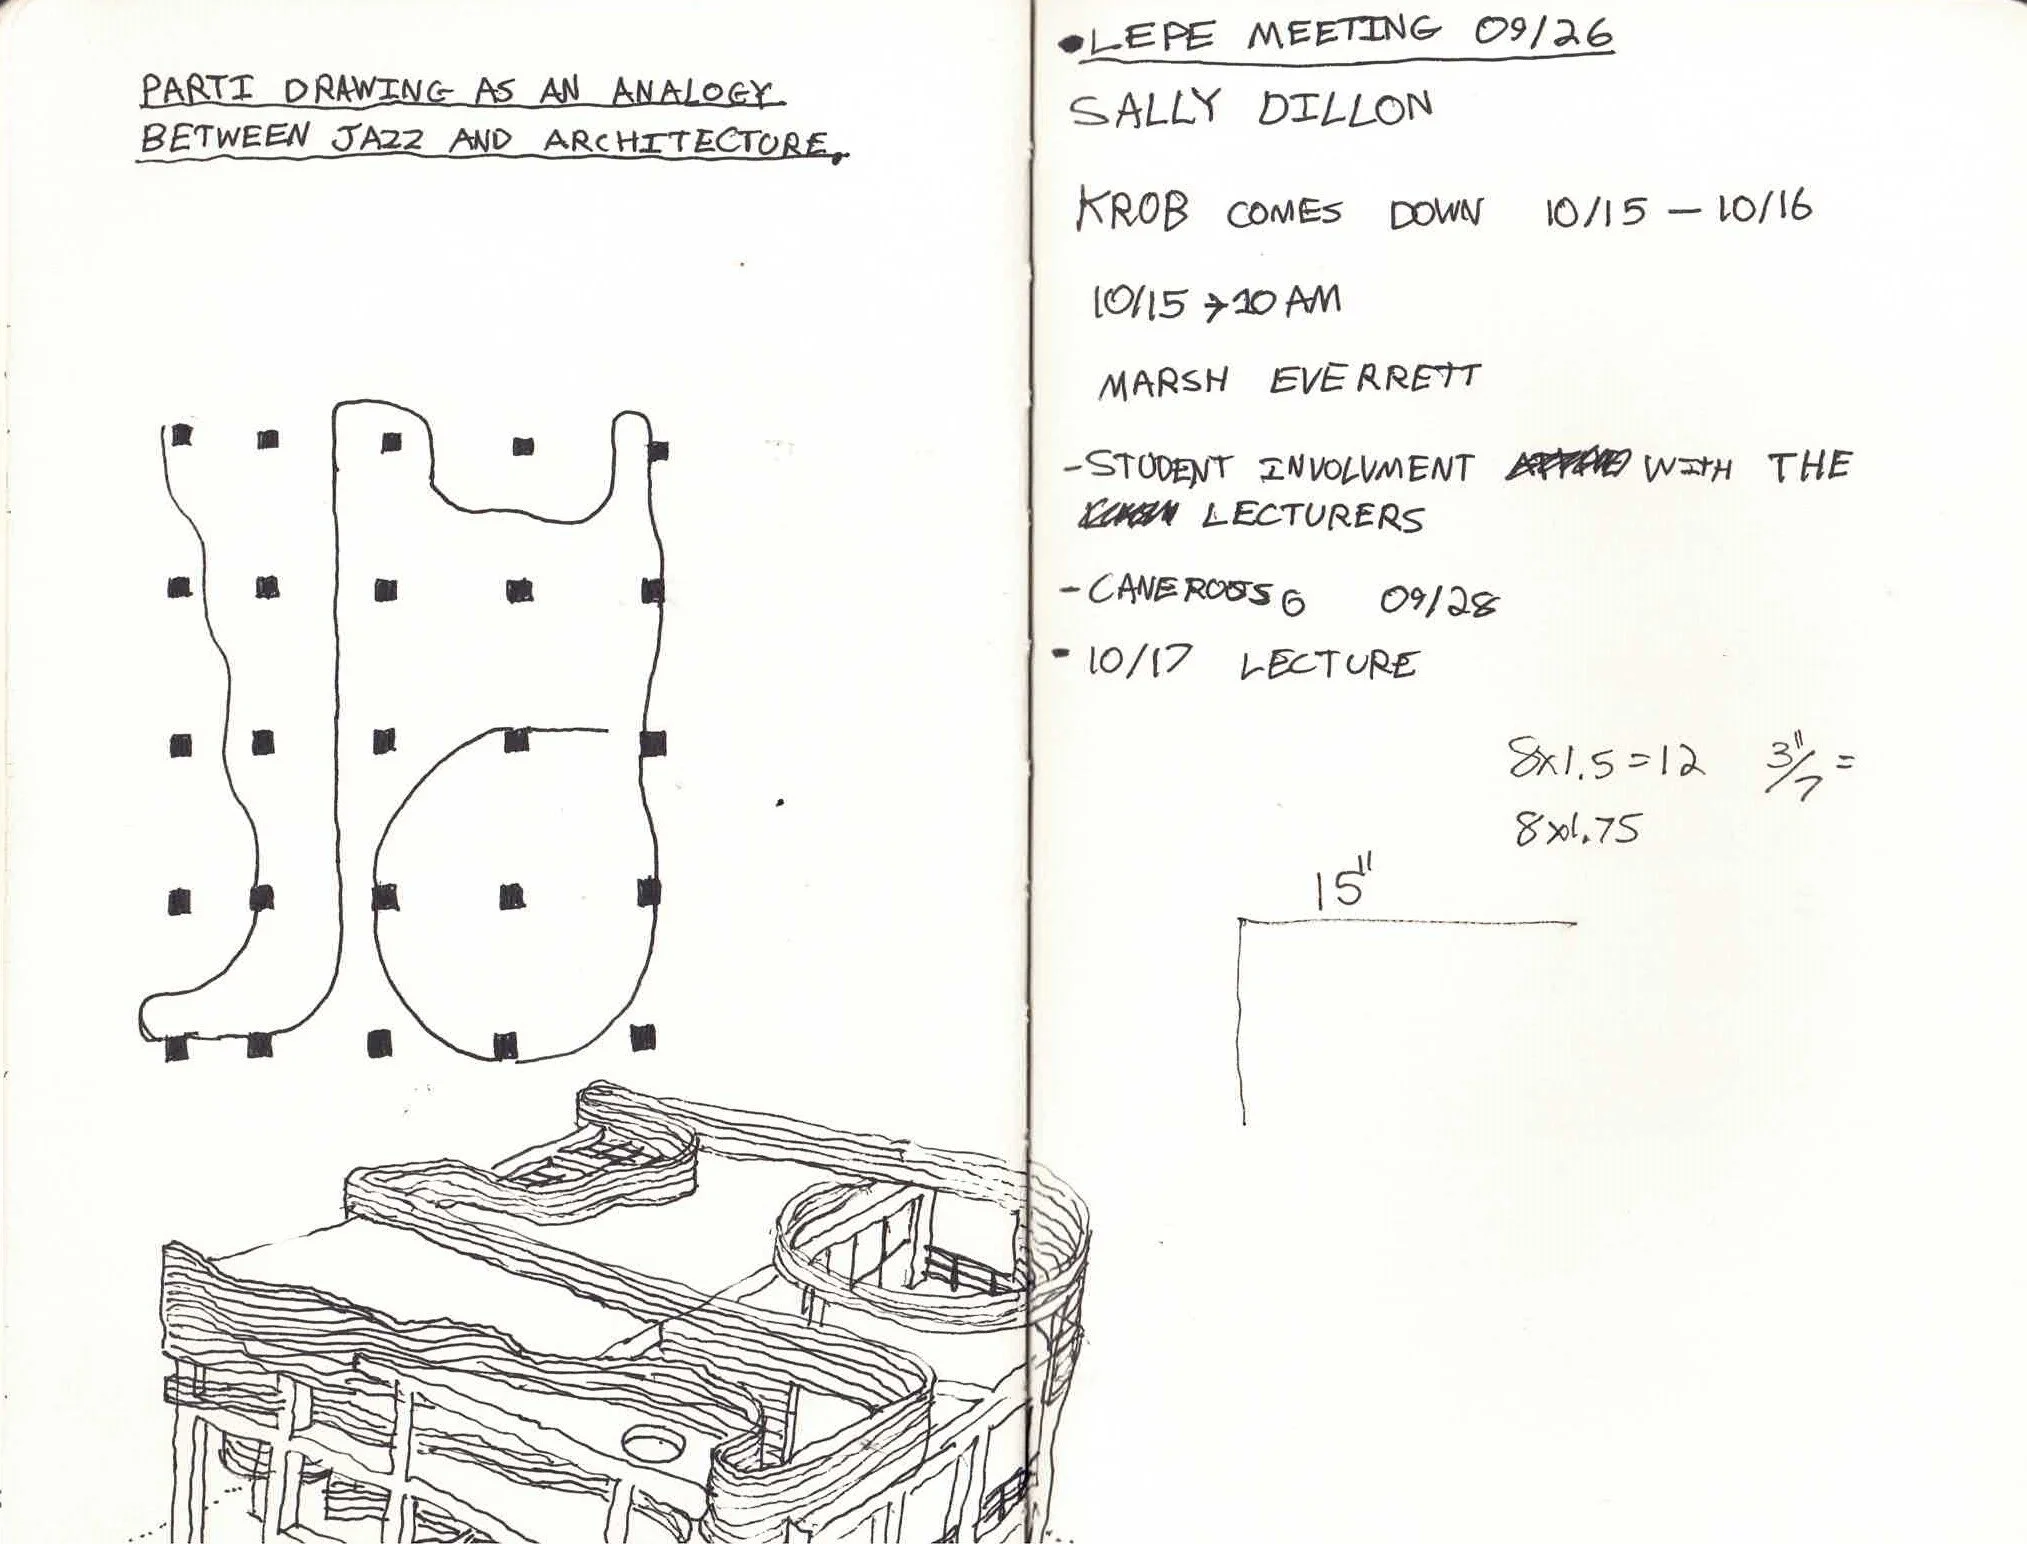 PARTI DRAWING AS AN ANALOGY
BETWEEN JAZZ AND ARCHITECTURE.
•LEPE MEETING 09/26
SALLY DILLON
KROB COMES DOWN 10/15 — 10/16
10/15 → 10 AM
MARSH EVERRETT
-STUDENT INVOLVMENT WITH THE
LECTURERS
- 09/28
- 10/17 LECTURE
8x1.5=12 3"/7 =
8x1.75
15"